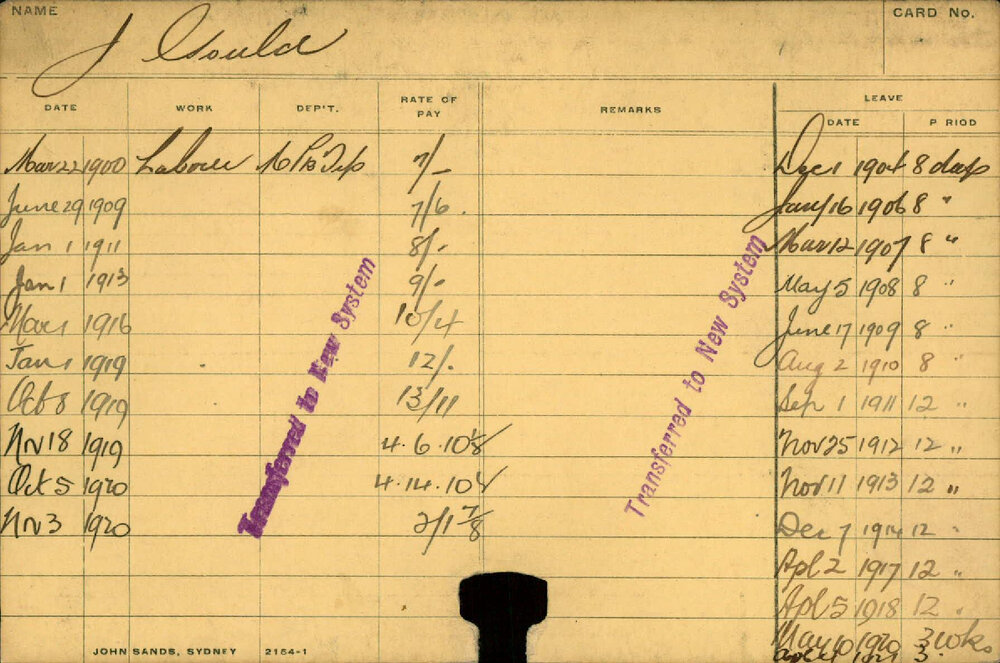 NAME CARD No.
J Gould
DATE WORK DEP'T. RATE OF PAY REMARKS LEAVE
DATE P RIOD
Mar 22 1900 Labour 7/- Dec 1 1904 8 days
June 29 1909 7/6 Jany 16 1906 8 "
Jan 1 1911 8/- Mar 12 1907 8 "
Jan 1 1913 9/- May 5 1908 8 "
Mar 1 1916 10/4 June 17 1909 8 "
Jan 1 1919 12/- Aug 2 1910 8 "
Oct 8 1919 13/11 Sep 1 1911 12 "
Nv 18 1919 4.6.10 Nov 25 1912 12 "
Oct 5 1920 4.14.10 Nov 11 1913 12 "
Nv 3 1920 2/1 7/8 Dec 7 1914 12 "
Apl 2 1917 12 "
Apl 5 1918 12 "
May 10 1920 3 wks
3
Transferred to New System
Transferred to New System
JOHN SANDS, SYDNEY 2164-1